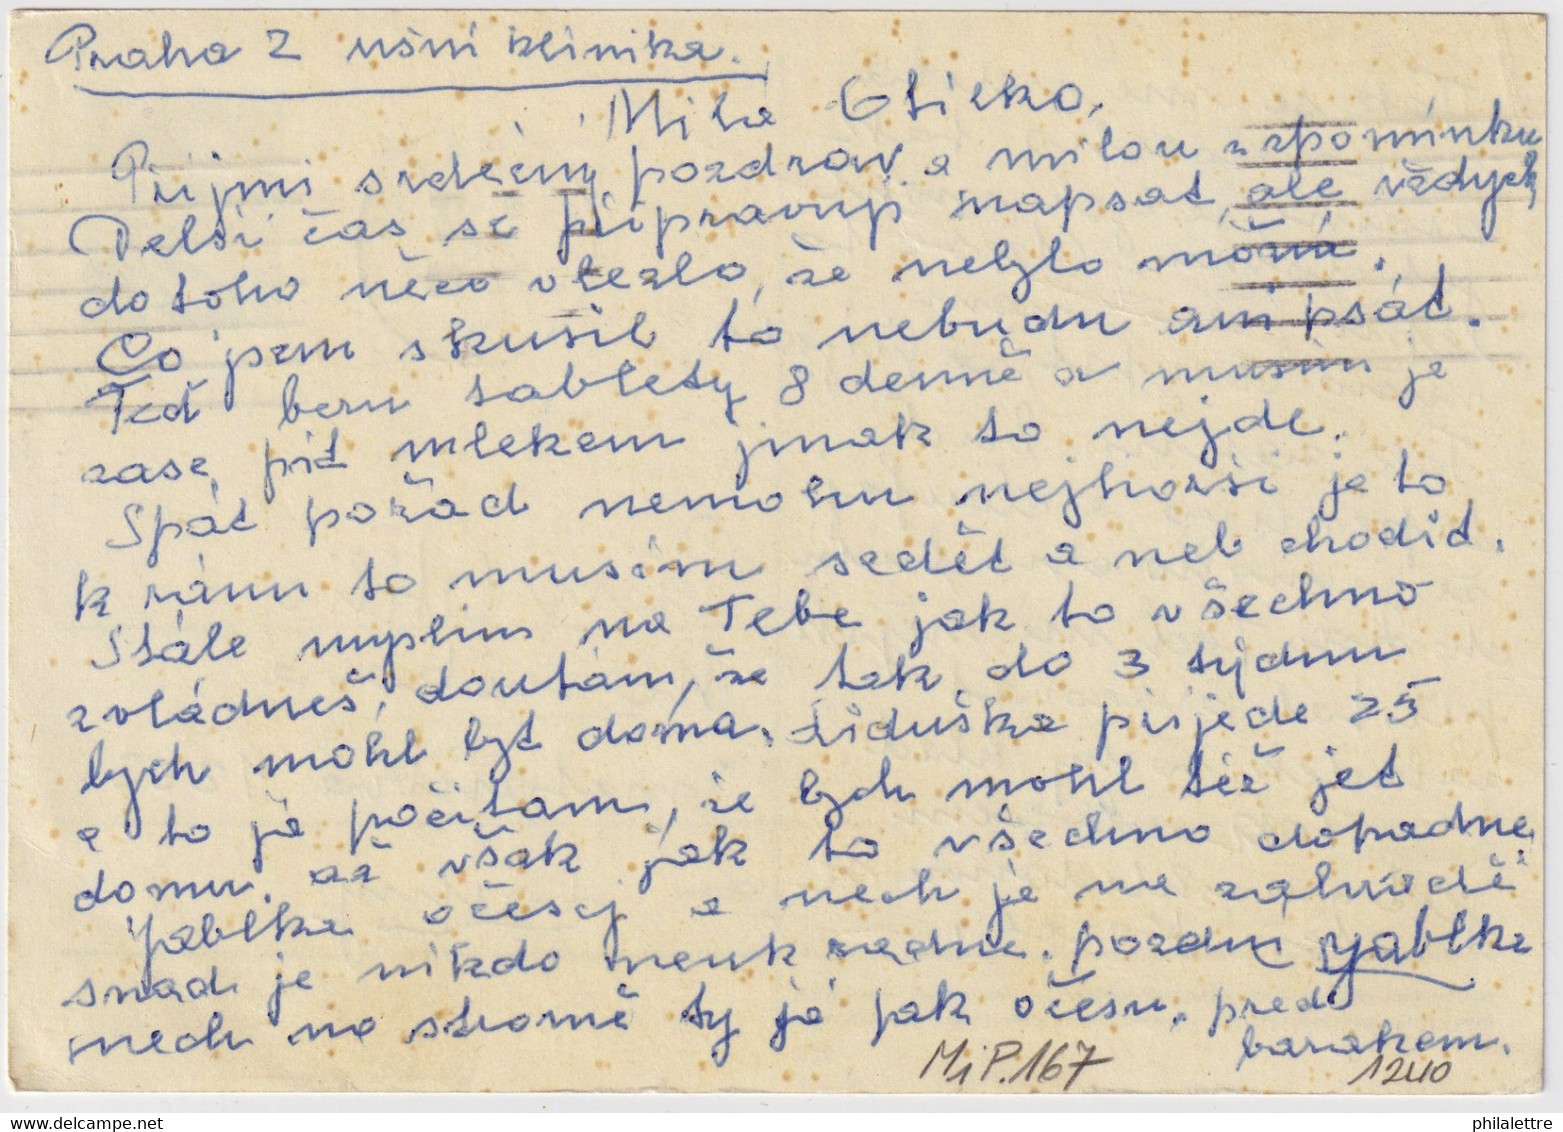 Praha 2 ušní klinika.
Milá Otilko,
Přijmi srdečný pozdrav a milou vzpomínku
Delší čas se připravuji napsat, ale vždycky
do toho něco vlezlo, že nebylo možná.
Co jsem skusil to nebudu ani psát.
Teď beru tablety 8 denně a musím je
zase pít mlekem jinak to nejde.
Spát pořád nemohu nejhorší je to
k ránu to musím sedět a neb chodit.
Stále myslim na Tebe jak to všechno
zvládneš, doufám, že tak do 3 týdnu
bych mohl byt doma. Liduška přijede 25
a to já počítam, že bych mohl též jet
domu. až však jak to všechno dopadne.
Jablka očesej a nech je na zahradě
snad je nikdo neukradne. pozdni Jablka
nech na stromě ty já pak očesu. pred
barakem.
MiP.167
1240
philalettre.com